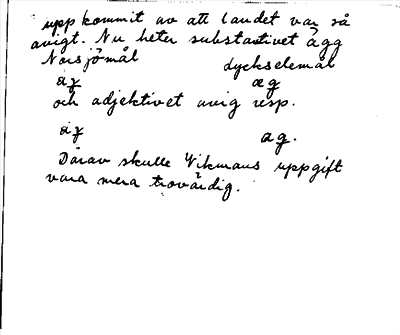 uppkommit av att landet var så
avigt. Nu heter substantivet ägg
Norsjömål dyckselemål
och adjektivet avig resp.
Därav skulle Wikmans uppgift
vara mera trovärdig.